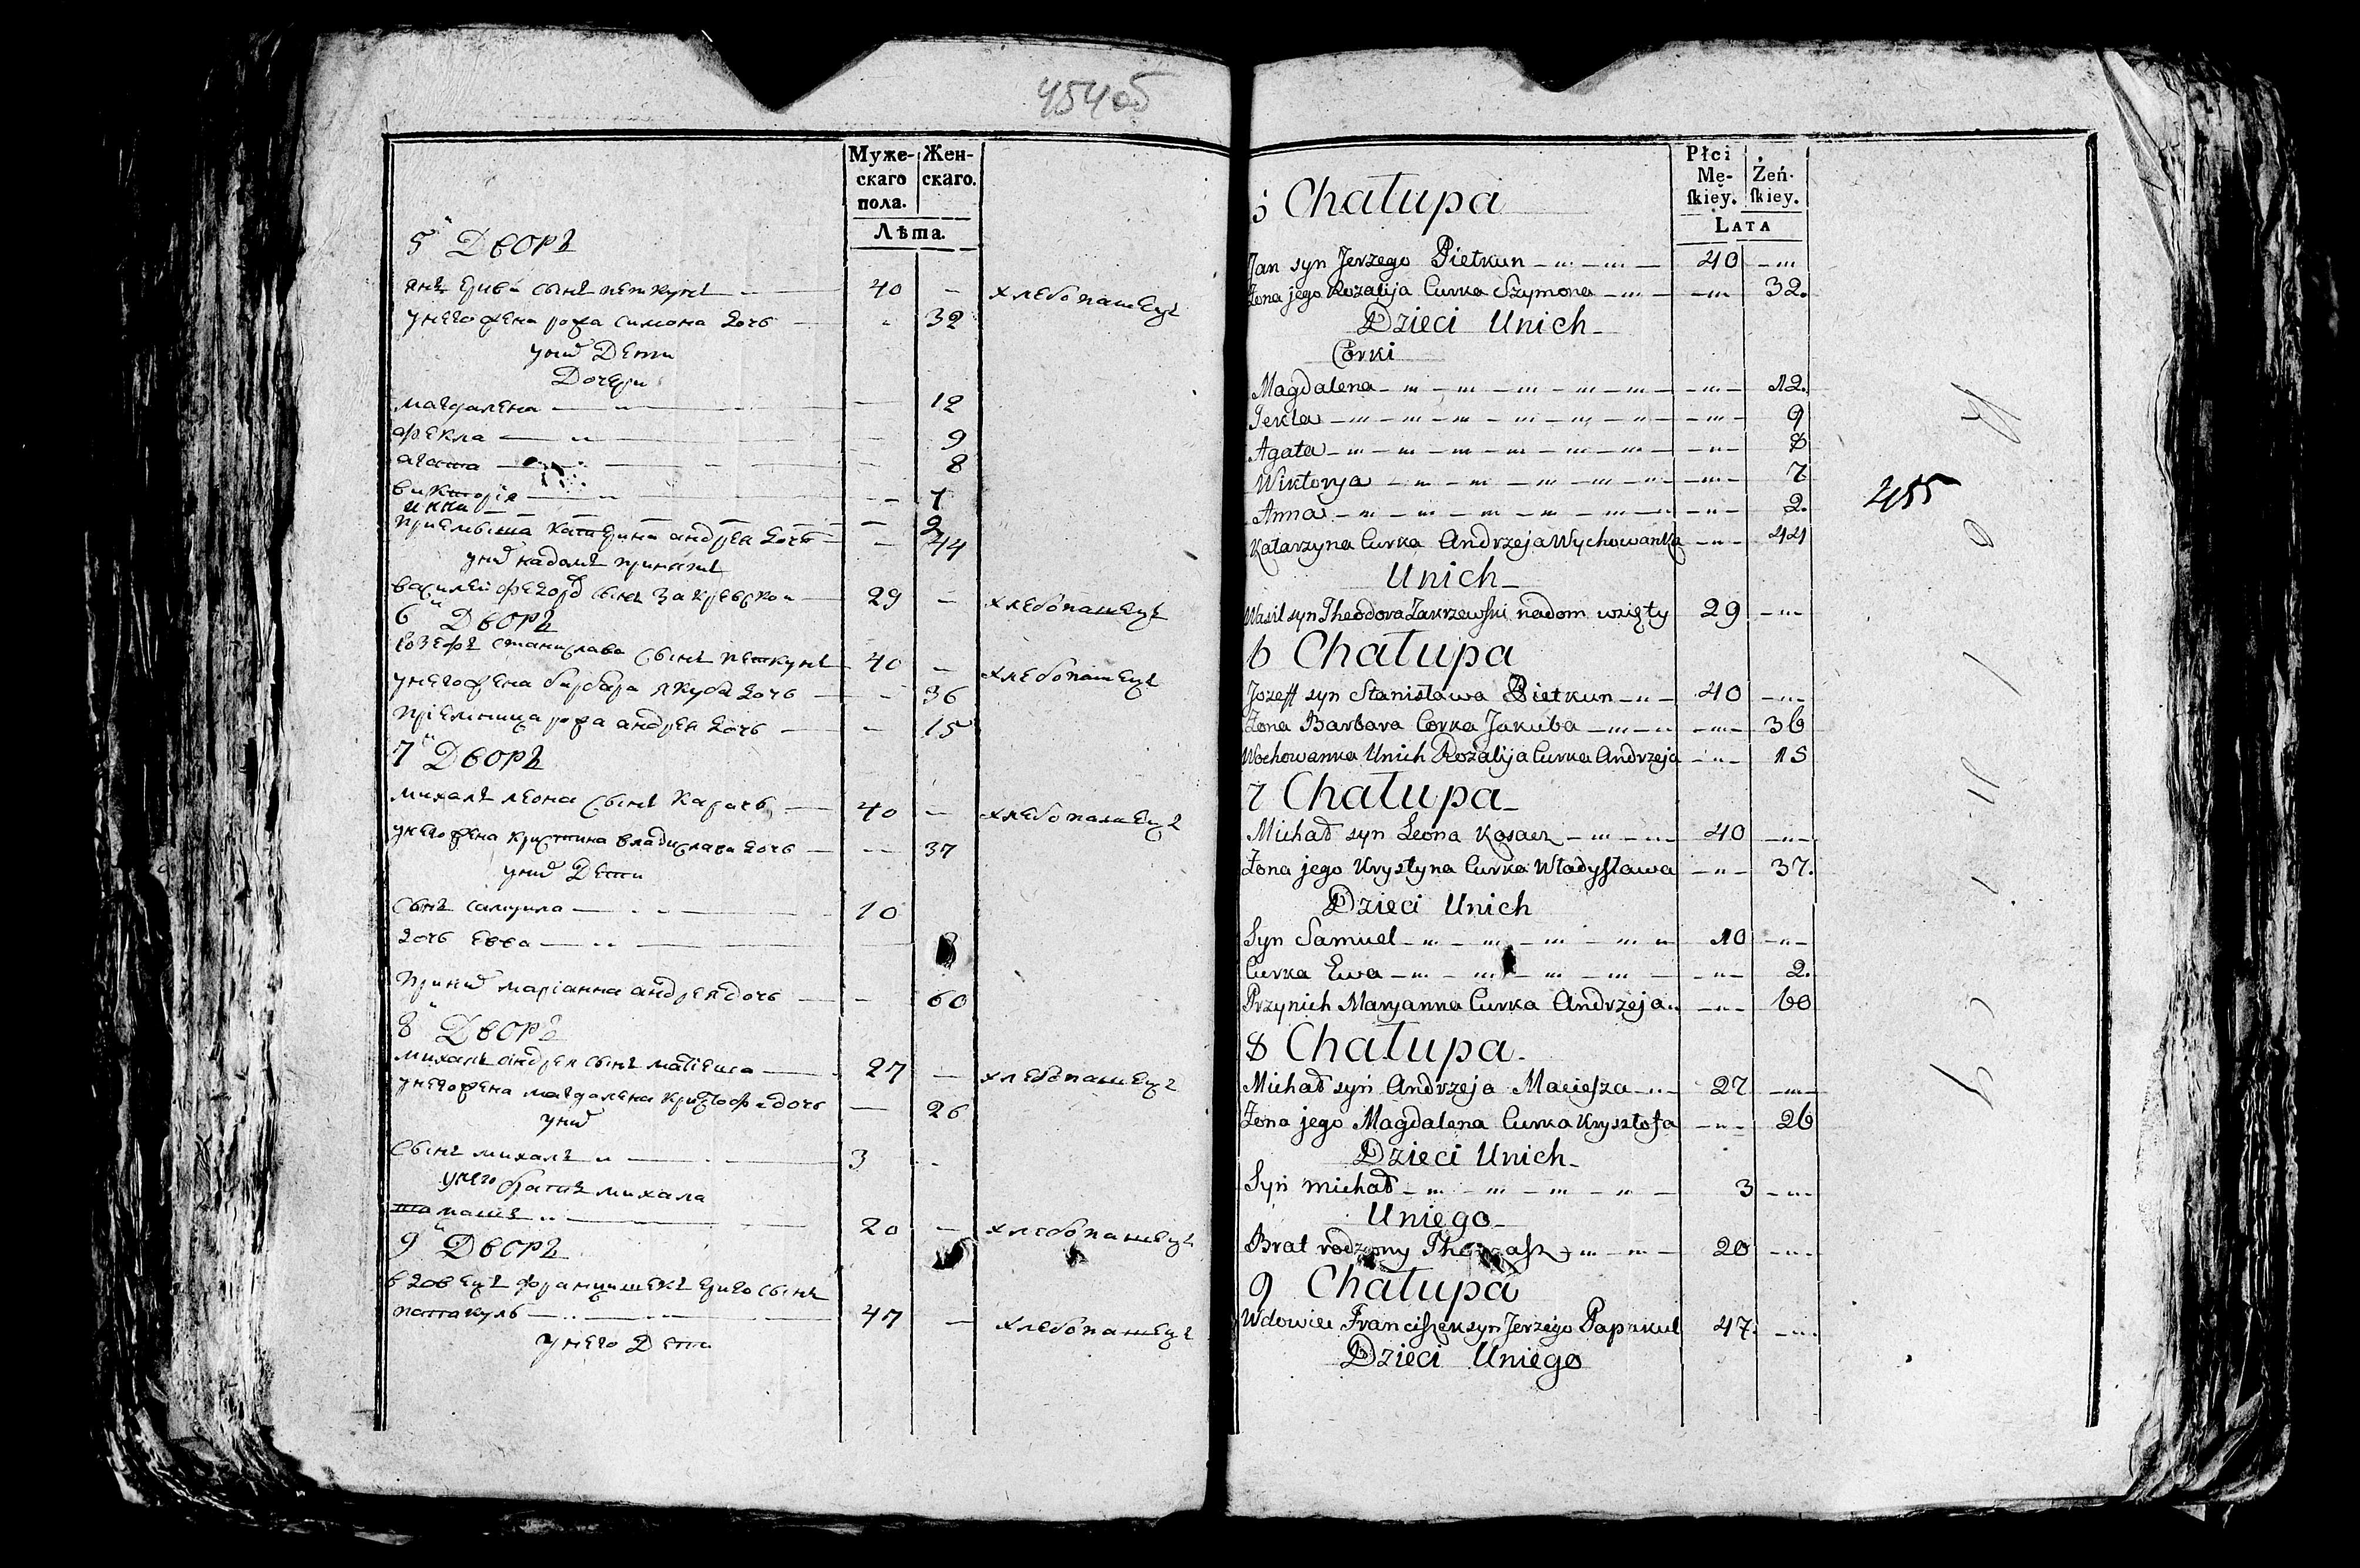 454 об
Муже-
скаго
пола.
Жен-
скаго.
Лѣта.
5й Дворъ
янъ Ерива сынъ петкунъ 40 — хлебопашецъ
унего жена рожа симона дочь 32
уних Дети
Дочери
магдалена 12
фекла 9
агата 8
виктория 7
анна 2
приемыша катерина андрея дочь 44
уних надомъ принятъ
василей федора сынъ закревской 29 — хлебопашецъ
6й Дворъ
иозефъ станислава сынъ петкунъ 40 — хлебопашецъ
унего жена барбара якуба дочь 36
приемница рожа андрея дочь 15
7й Дворъ
михалъ леона сынъ 40 — хлебопашецъ
унего жена кристина владислава дочь 37
уних Дети
сынъ самуила 10
дочь Евва
приних марианна андрея дочь 60
8й Дворъ
михалъ андрея сынъ матеиша 27 — хлебопашецъ
унего жена магдалена кристофа дочь 26
уних
сынъ михалъ 3
унего братъ михала
томашъ 20 — хлебопашецъ
9й Дворъ
вдовецъ францишекъ Ериго сынъ
47 — хлебопашецъ
унего Дети
Płci
Mę-
ſkiey.
Żeń-
ſkiey.
LATA
5 Chałupa
Jan syn Jerzego Pietkun 40
Żona jego Rozalija Curka Szymona 32.
Dzieci Unich
Córki
Magdalena 12.
Tekla 9
Agata 8
Wiktorya 7
Anna 2.
Katarzyna Curka Andrzeja Wychowanka 44
Unich
Wasil syn Theodora Zakrzewſki nadom wzięty 29
6 Chałupa
Jozeff syn Stanisława Pietkun 40
Żona Barbara Corka Jakuba 36
Wochowanka Unich Rozalija Curka Andrzeja 15
7 Chałupa
Michał syn Leona Kosacz 40
Żona jego Krystyna Curka Władyſława 37.
Dzieci Unich
Syn Samuel 10
Curka Ewa 2.
Przynich Maryanna Curka Andrzeja 60
8 Chałupa
Michał syn Andrzeja Macieſza 27
Żona jego Magdalena Curka Krysztofa 26
Dzieci Unich
Syn michał 3
Uniego
Brat rodzony Thomaſz 20
9 Chałupa
Wdowiec Franciſzek syn Jerzego Papukul 47.
Dzieci Uniego
455